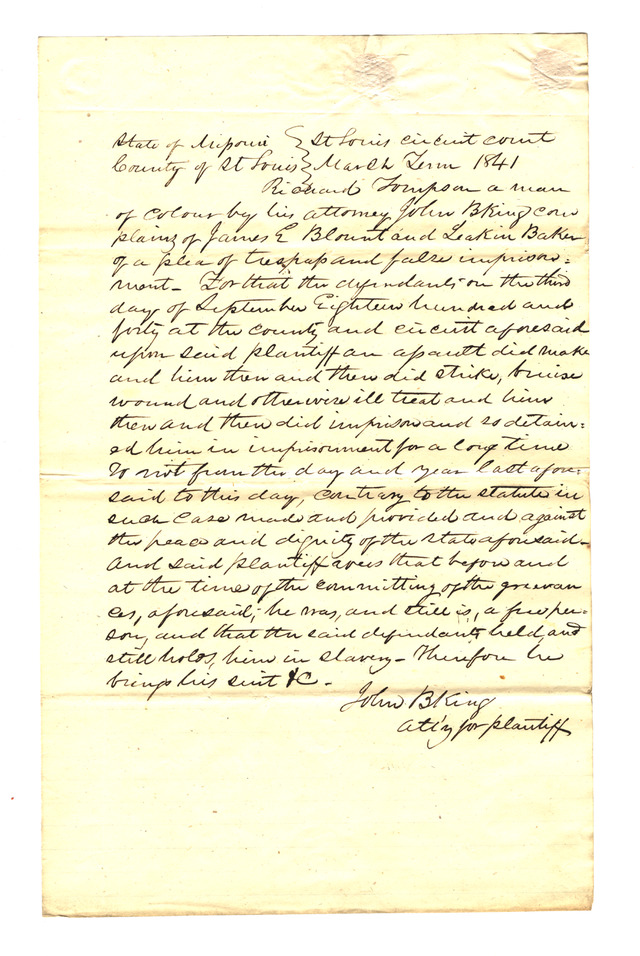 State of Missouri } St Louis circuit court
County of St Louis } March Term 1841
Richard Tompson a man
of colour by his attorney John B King com
plains of James E Blount and Leakin Baker
of a plea of trespass and false imprison=
ment – For that the defendants on the third
day of September Eighteen hundred and
forty at the county and circuit aforesaid
upon said plantiff an assault did make
and him then and there did strike, bruise
wound and otherwise ill treat and him
then and there did imprison and so detain=
ed him in imprisonment for a long time
To wit from the day and year last afore=
said to this day, contrary to the statute in
such case made and provided and against
the peace and dignity of the state aforesaid –
And said plantiff avers that before and
at the time of the committing of the grievan
ces, aforesaid, he was, and still is, a free per=
son, and that the said defendants held, and
still holds, him in slavery – Therefore he
brings his suit &C –
John B King
Att'y for plantiff